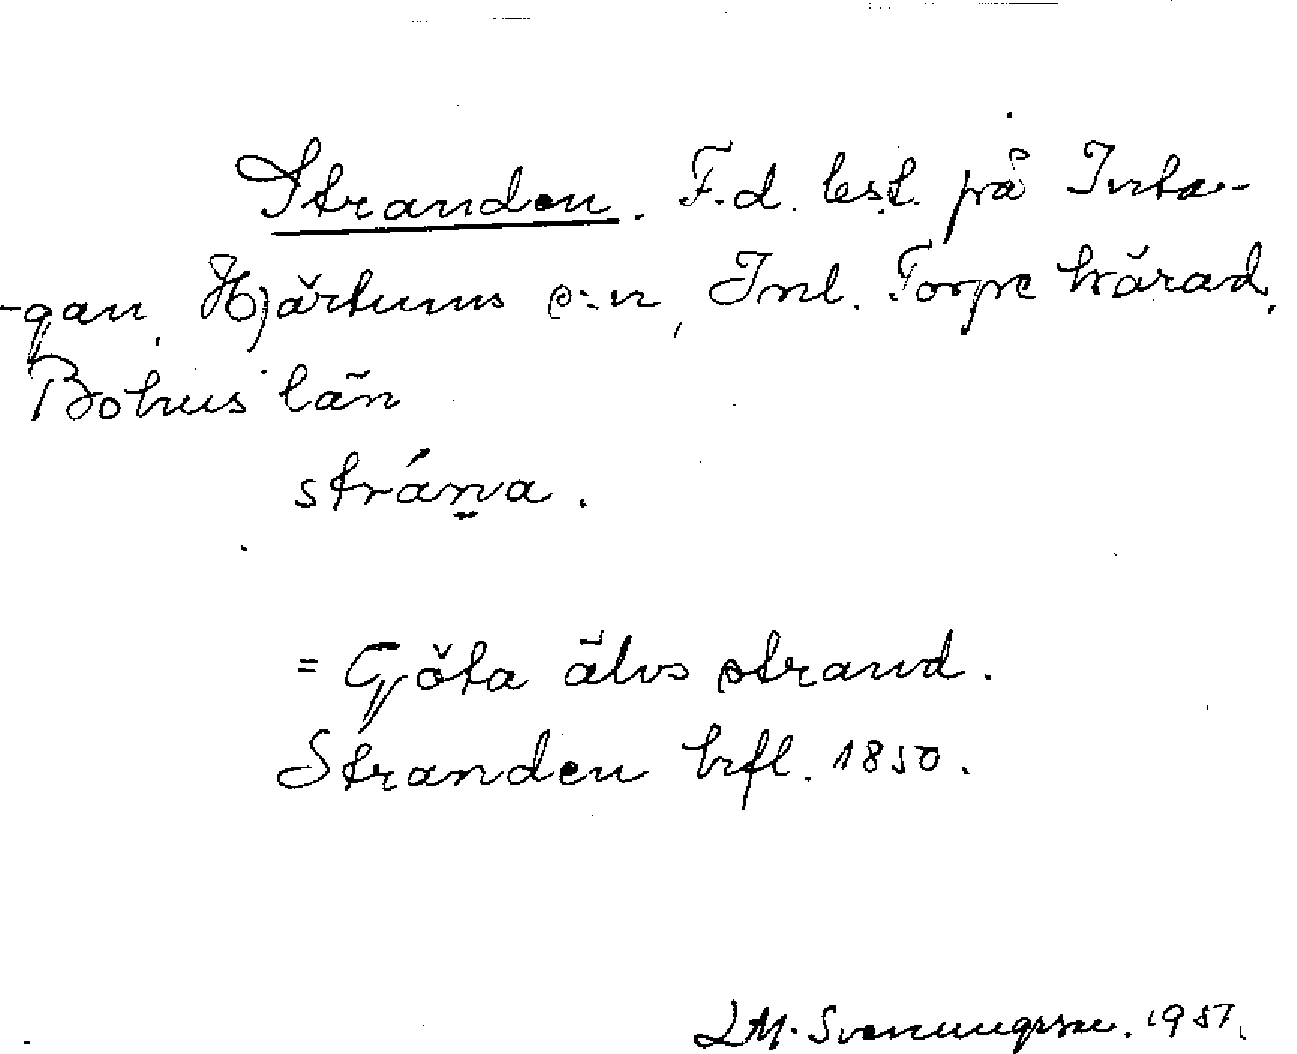 Stranden. F.d. lst. på Inta-
-gan, Hjärtums s:n, Inl. Torpe härad,
Bohus län
stráṉa.
= Göta älvs strand.
Stranden hfl. 1850.
LM. Svenungsson. 1951.